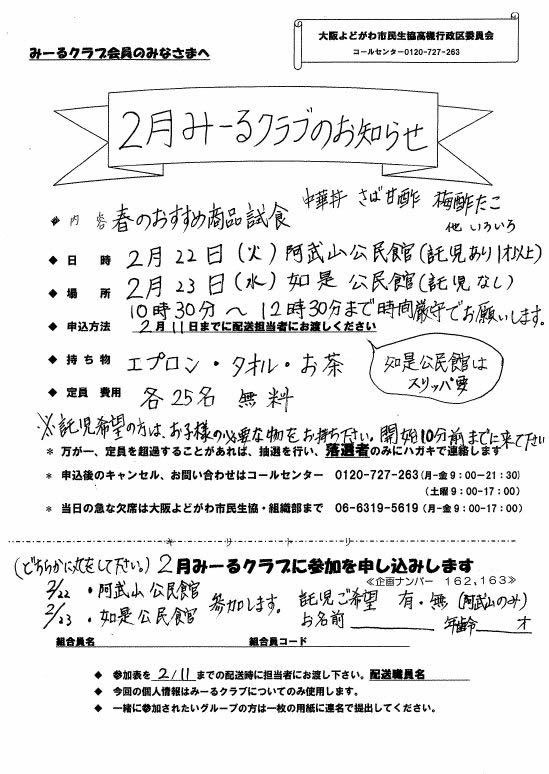 大阪よどがわ市民生協高槻行政区委員会
コールセンター0120-727-263
みーるクラブ会員のみなさまへ
2月みーるクラブのお知らせ
◆ 内 容 春のおすすめ商品試食 中華丼 さば甘酢 梅酢たこ
他 いろいろ
◆ 日 時 2月22日(火)阿武山公民館(託児あり1才以上)
◆ 場 所 2月23日(水)如是 公民館(託児なし)
10時30分 〜 12時30分まで時間厳守でお願いします。
◆ 申込方法 2月11日までに配送担当者にお渡しください
◆ 持 ち 物 エプロン・タオル・お茶
如是公民館は
スリッパ要
◆ 定員 費用 各25名 無料
※託児希望の方は、お子様の必要な物をお持ち下さい。開始10分前までに来て下さい
* 万が一、定員を超過することがあれば、抽選を行い、落選者のみにハガキで連絡します
* 申込後のキャンセル、お問い合わせはコールセンター 0120-727-263(月-金9:00-21:30)
(土曜9:00-17:00)
* 当日の急な欠席は大阪よどがわ市民生協・組織部まで 06-6319-5619(月-金9:00-17:00)
キリトリ
(どちらかに丸をして下さい。)2月みーるクラブに参加を申し込みします
≪企画ナンバー 162,163≫
2/22 ・阿武山公民館
2/23 ・如是公民館 参加します。 託児ご希望 有・無 (阿武山のみ)
お名前 年齢 才
組合員名 組合員コード
◆ 参加表を 2/11 までの配送時に担当者にお渡し下さい。配送職員名
◆ 今回の個人情報はみーるクラブについてのみ使用します。
◆ 一緒に参加されたいグループの方は一枚の用紙に連名で提出してください。